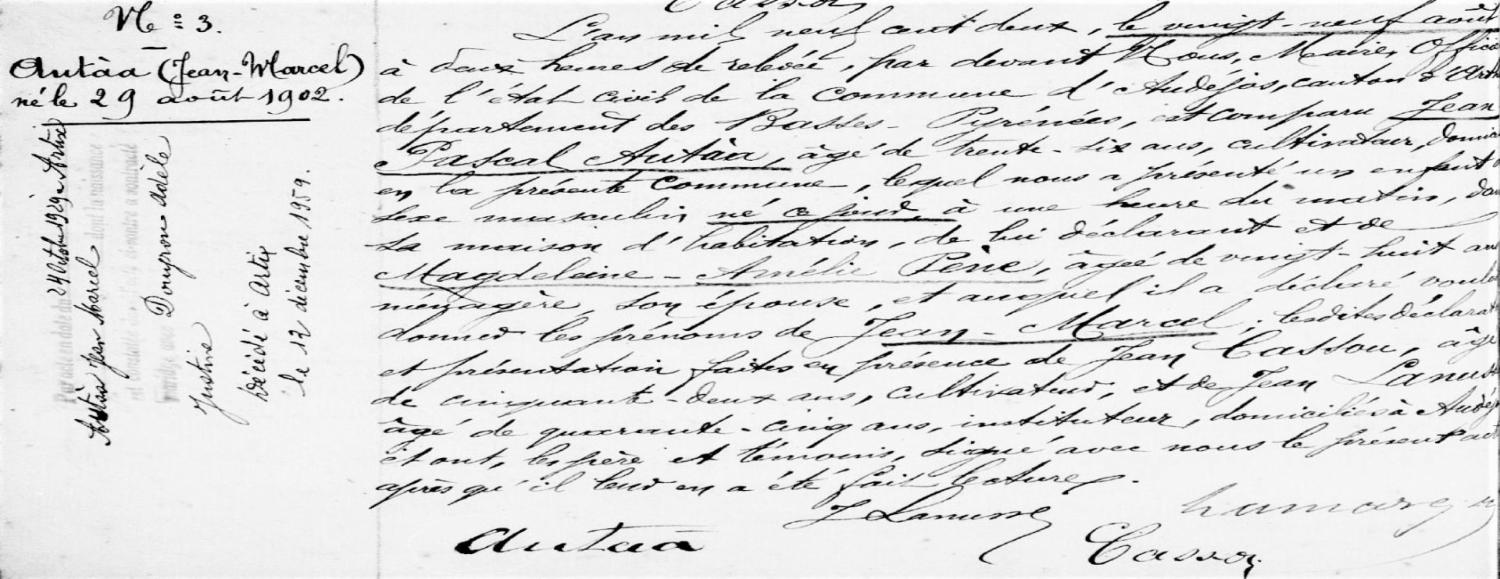 Cassou
N° 3.
Autàa (Jean-Marcel)
né le 29 août 1902.
24 Octobre 1929 Artix
Autàa Jean Marcel
Douyrou Adèle
Justine
Décédé à Artix
le 12 décembre 1959.
L'an mil neuf cent deux, le vingt-neuf août
à deux heures de relevée, par devant Nous, Maire, Offici
de l'état civil de la Commune d'Audéjos, canton d'Arth
département des Basses-Pyrénées, est comparu Jean
Pascal Autàa, âgé de trente-six ans, cultivateur, domici
en la présente Commune, lequel nous a présenté un enfant
sexe masculin, né ce jour, à une heure du matin, da
sa maison d'habitation, de lui déclarant et de
Magdeleine-Amélie Pène, âgée de vingt-huit ans
ménagère, son épouse, et auquel il a déclaré voulo
donner les prénoms de Jean-Marcel; lesdites déclarat
et présentation faites en présence de Jean Cassou, âgé
de cinquante-deux ans, cultivateur, et de Jean Lanuss
âgé de quarante-cinq ans, instituteur, domiciliés à Audéj
et ont, les père et témoins, signé avec nous le présent act
après qu'il leur en a été fait lecture.
J Lanusse
Autàa
Cassou